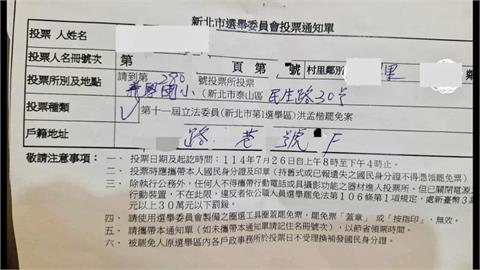 新北市選舉委員會投票通知單
投票人姓名
投票人名冊號次 第 頁 第 號 村里鄰別 里 鄰
投票所別及地點 請到第 390 號投票所投票
國小 (新北市泰山區 民生路30号
投票種類 ✓ 第十一屆立法委員(新北市第1選舉區)洪孟楷罷免案
戶籍地址 路 巷 號 F
敬請注意事項:一、投票日期及起訖時間:114年7月26日上午8時至下午4時止。
二、投票時應攜帶本人國民身分證及印章(持舊式或已報遺失之國民身分證不得憑領罷免票)
三、除執行公務外,任何人不得攜帶行動電話或具攝影功能之器材進入投票所。但已關閉電源之
行動裝置,不在此限,違反者依公職人員選舉罷免法第106條第1項規定,處新臺幣3萬
元以上30萬元以下罰鍰。
四、請使用選舉委員會製備之圈選工具圈蓋罷免票,罷免票「蓋章」或「按指印」,無效。
五、請攜帶本通知單(如未攜帶本通知單請記住名冊號次),以節省領票時間。
六、被罷免人原選舉區內各戶政事務所於投票日不受理換補發國民身分證。